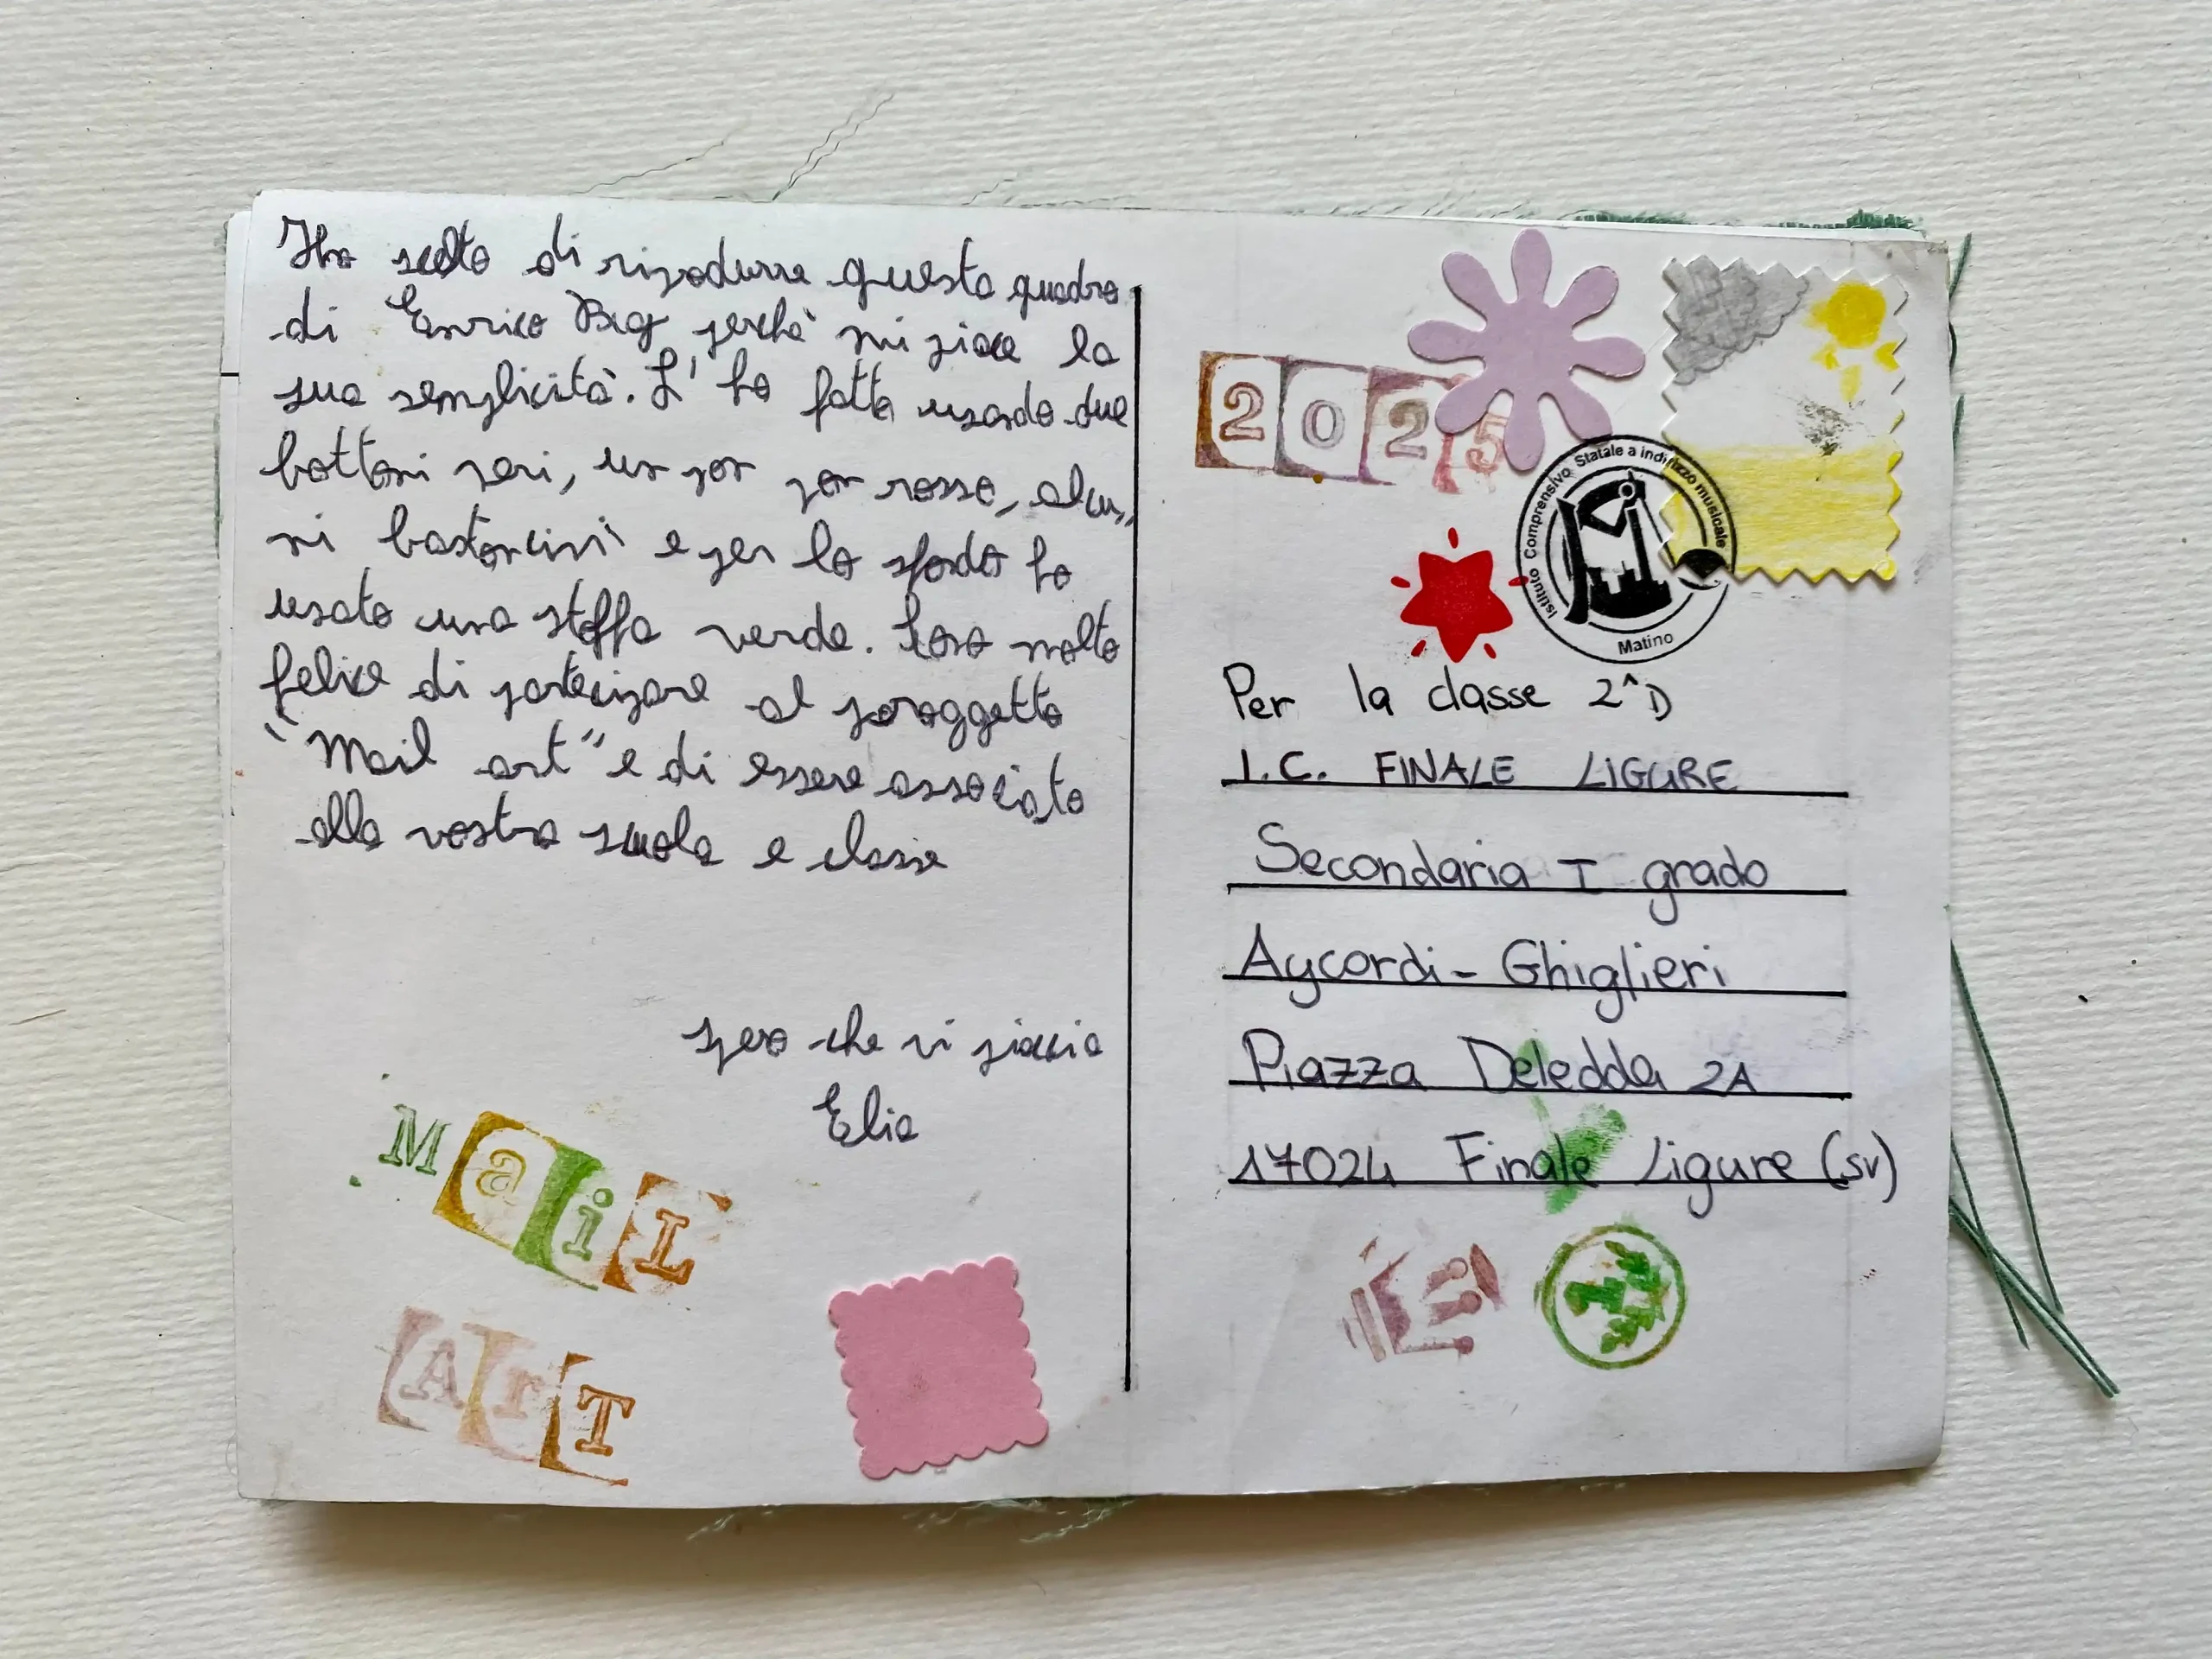 Ho scelto di riprodurre questo quadro
di Enrico Baj perchè mi piace la
sua semplicità. L'ho fatto usando due
bottoni neri, un pon pon rosso, alcu,,
ni bastoncini e per lo sfondo ho
usato una stoffa verde. Sono molto
felice di partecipare al proggetto
"Mail art" e di essere associato
alla vostra scuola e classe
spero che vi piaccia
Elia
MaiL
ArT
2025
Istituto Comprensivo Statale a indirizzo musicale
Matino
Per la classe 2^D
I.C. FINALE LIGURE
Secondaria I grado
Aycardi - Ghiglieri
Piazza Deledda 2A
17024 Finale Ligure (SV)